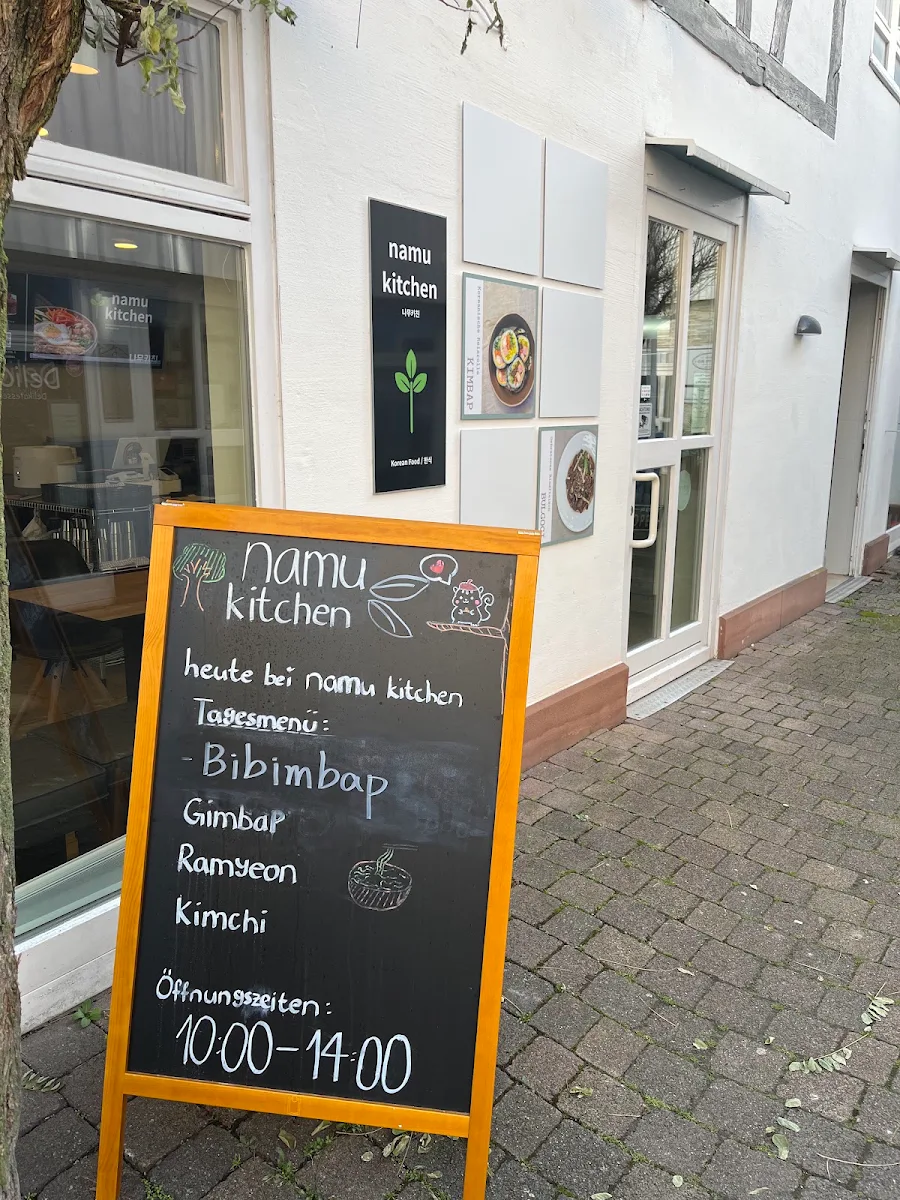 namu
kitchen
나무키친
Korean Food / 한식
KIMBAP
namu
kitchen
namu
kitchen
heute bei namu kitchen
Tagesmenü:
- Bibimbap
Gimbap
Ramyeon
Kimchi
Öffnungszeiten:
10:00 - 14:00